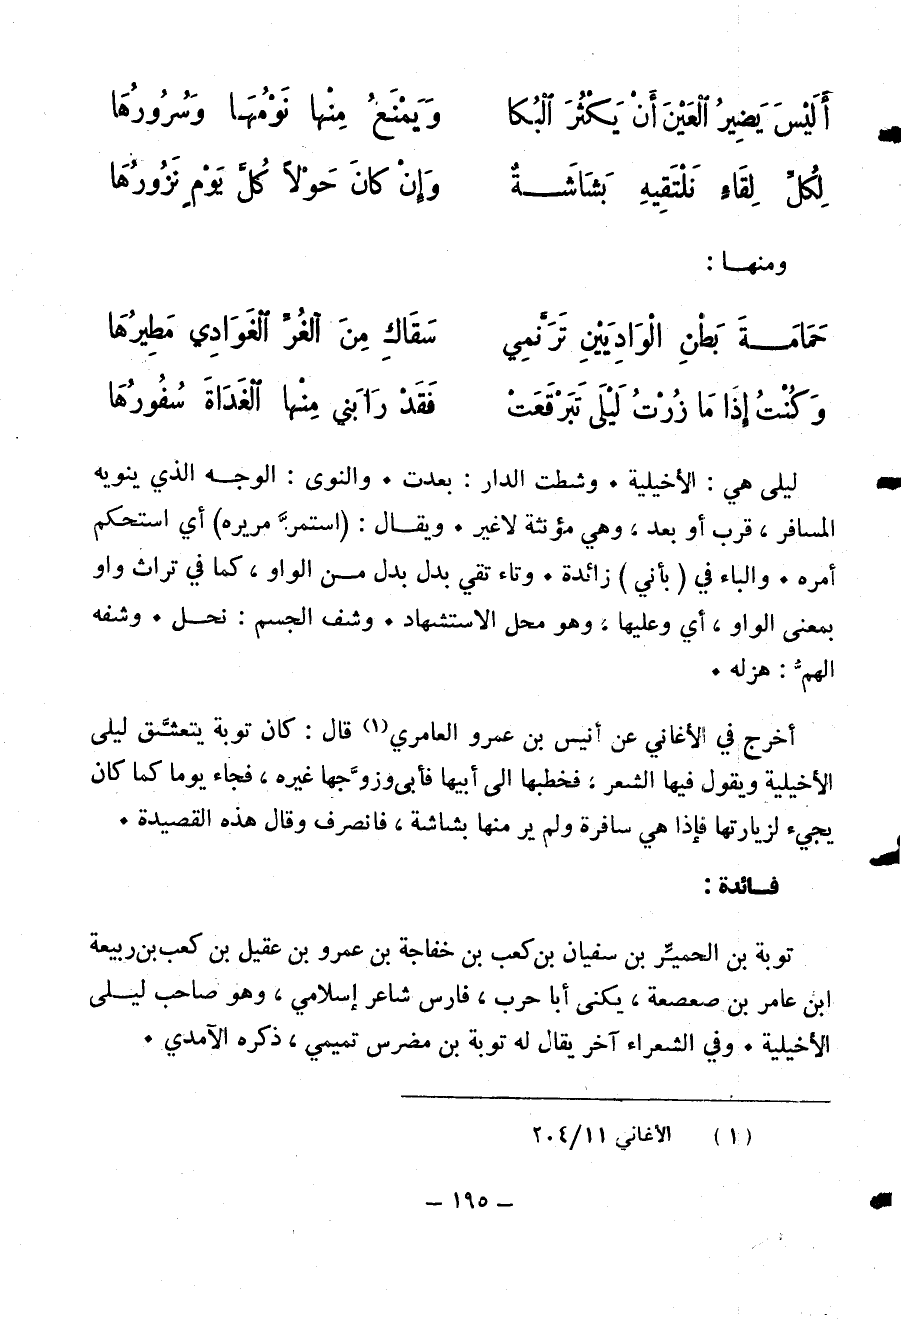 أَلَيْسَ يَضِيرُ ٱلعَيْنَ أَنْ يَكْثُرَ ٱلبُكا وَيَمْنَعُ مِنْها نَوْمُهَا وَسُرُورُهَا
لِكُلِّ لِقَاءٍ نَلْتَقِيهِ بَشاشَةٌ وَإِنْ كانَ حَوْلاً كُلَّ يَوْمٍ نَزُورُهَا
ومنها :
حَمَامَةَ بَطْنِ الْوَادِيَيْنِ تَرَنَّمِي سَقَاكِ مِنَ ٱلغُرِّ ٱلغَوَادِي مَطِيرُهَا
وَكُنْتُ إِذَا مَا زُرْتُ لَيْلَى تَبَرْقَعَتْ فَقَدْ رَابَنِي مِنْها ٱلغَدَاةَ سُفُورُهَا
ليلى هي : الأخيلية ٠ وشطت الدار : بعدت ٠ والنوى : الوجه الذي ينويه
المسافر ، قرب أو بعد ، وهي مؤنثة لاغير ٠ ويقال : (استمرَّ مريره) أي استحكم
أمره ٠ والباء في ( بأني ) زائدة ٠ وتاء تقي بدل بدل من الواو ، كما في تراث واو
بمعنى الواو ، أي وعليها ، وهو محل الاستشهاد ٠ وشف الجسم : نحل ٠ وشفه
الهمُّ : هزله ٠
أخرج في الأغاني عن أنيس بن عمرو العامري(١) قال : كان توبة يتعشَّق ليلى
الأخيلية ويقول فيها الشعر ، فخطبها الى أبيها فأبى وزوَّجها غيره ، فجاء يوما كما كان
يجيء لزيارتها فإذا هي سافرة ولم ير منها بشاشة ، فانصرف وقال هذه القصيدة ٠
فائدة :
توبة بن الحميِّر بن سفيان بن كعب بن خفاجة بن عمرو بن عقيل بن كعب بن ربيعة
ابن عامر بن صعصعة ، يكنى أبا حرب ، فارس شاعر إسلامي ، وهو صاحب ليلى
الأخيلية ٠ وفي الشعراء آخر يقال له توبة بن مضرس تميمي ، ذكره الآمدي ٠
(١) الأغاني ٢٠٤/١١
– ١٩٥ –